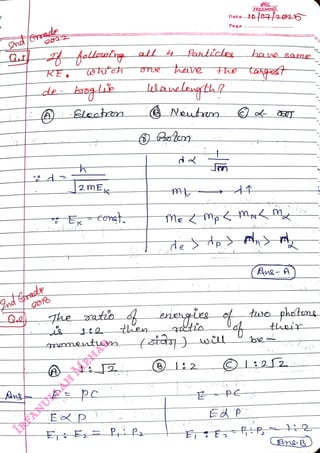 Date 10/07/2025
Page
2nd Grade 2022
Q.1 If following all 4 Particles have same
KE. which one have the largest
de-broglie wavelength?
Ⓐ Electron Ⓑ Neutron Ⓒ α- कण
Ⓓ Proton
∵ λ = h / √2mEK
λ ∝ 1/√m
m↓ → λ↑
∵ EK = const.
me < mp < mn < mα
λe > λp > λn > λα
Ans- A
2nd Grade 2018
Q.2 The ratio of energies of two photons
is 1:2 then ratio of their
momentum (संवेग) will be-
Ⓐ 1:√2 Ⓑ 1:2 Ⓒ 1:2√2
Ans- E = PC
E = PC
E ∝ P
E ∝ P
E1 : E2 = P1 : P2
E1 : E2 = P1 : P2 = 1:2
Ans-B
IRFANULLAH MEHAR